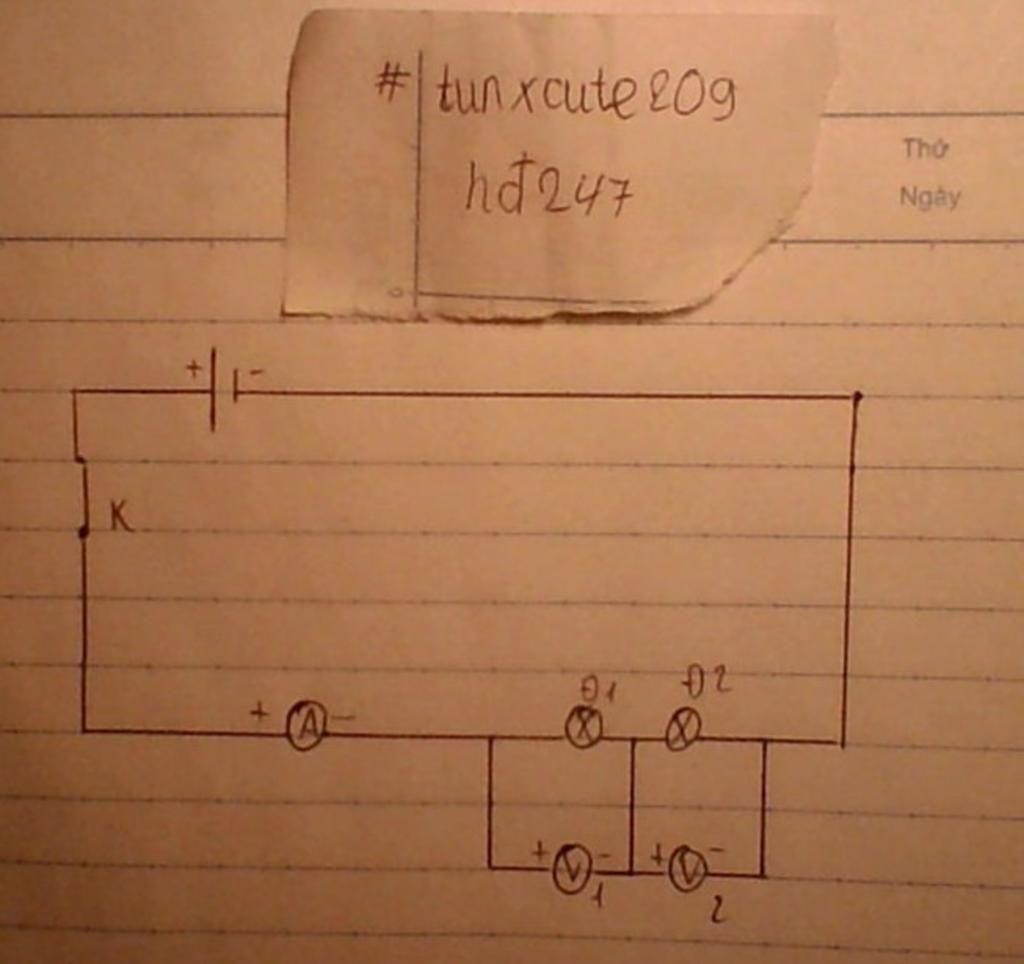 # tunxcute209
hđ247
Thứ
Ngày
+ -
K
Đ1 Đ2
+ A -
+ V - + V -
1 2